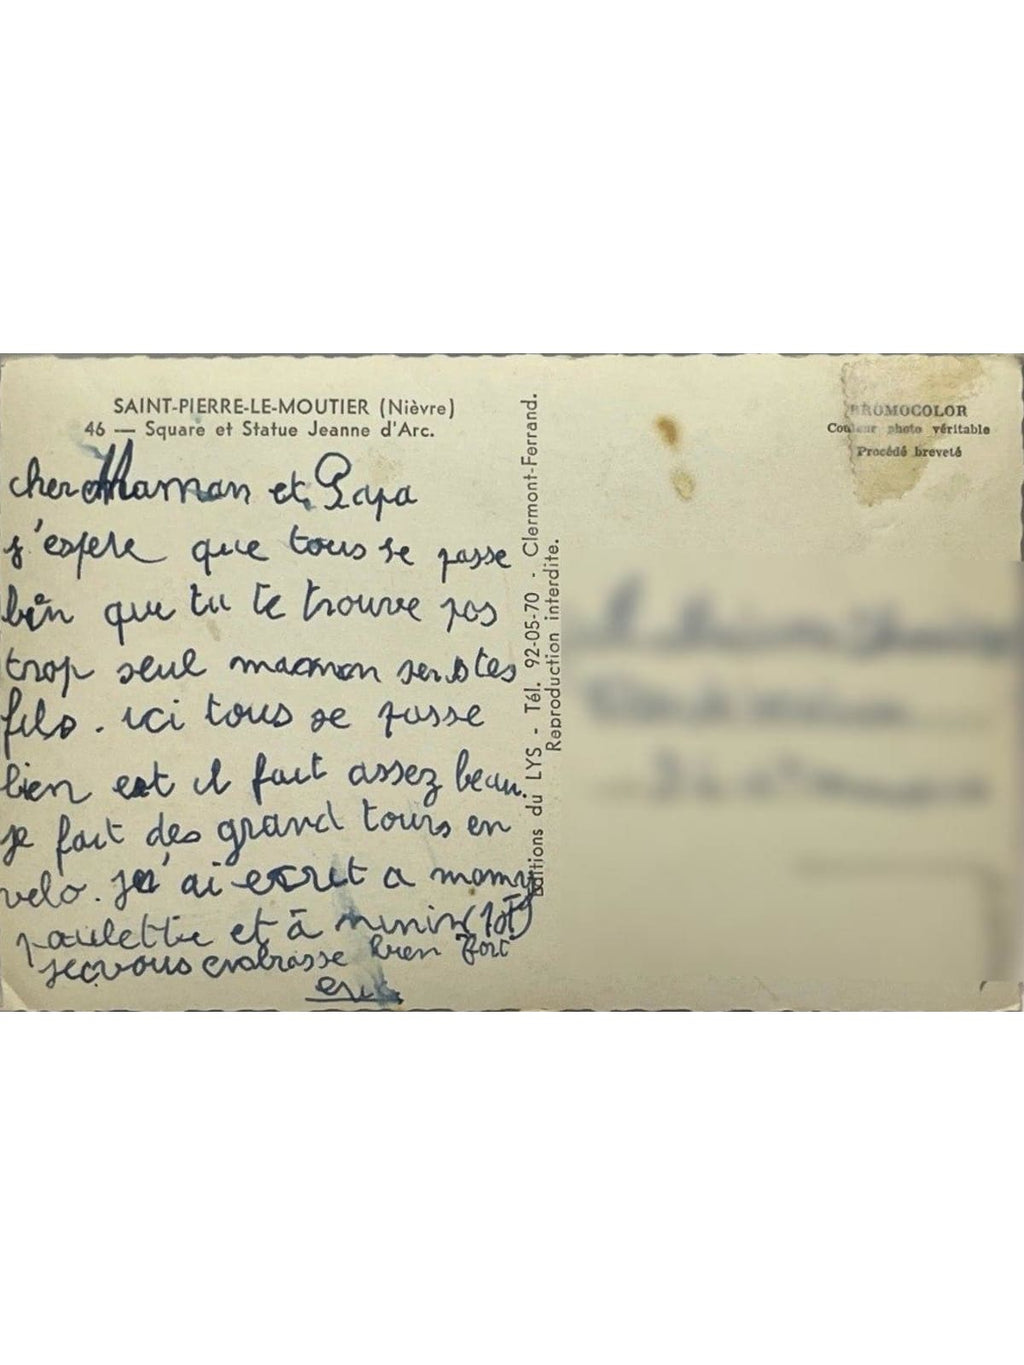 SAINT-PIERRE-LE-MOUTIER (Nièvre)
46 — Square et Statue Jeanne d'Arc.
cher Maman et Papa
j'espere que tous se passe
bien que tu te trouve pas
trop seul maman sens tes
fils. ici tous se passe
bien est il fait assez beau.
je fait des grand tours en
velo. j'ai ecrit a mamy
paulette et à
je vous embrasse bien fort
eric
Editions du LYS - Tél. 92-05-70 - Clermont-Ferrand.
Reproduction interdite.
BROMOCOLOR
Couleur photo véritable
Procédé breveté